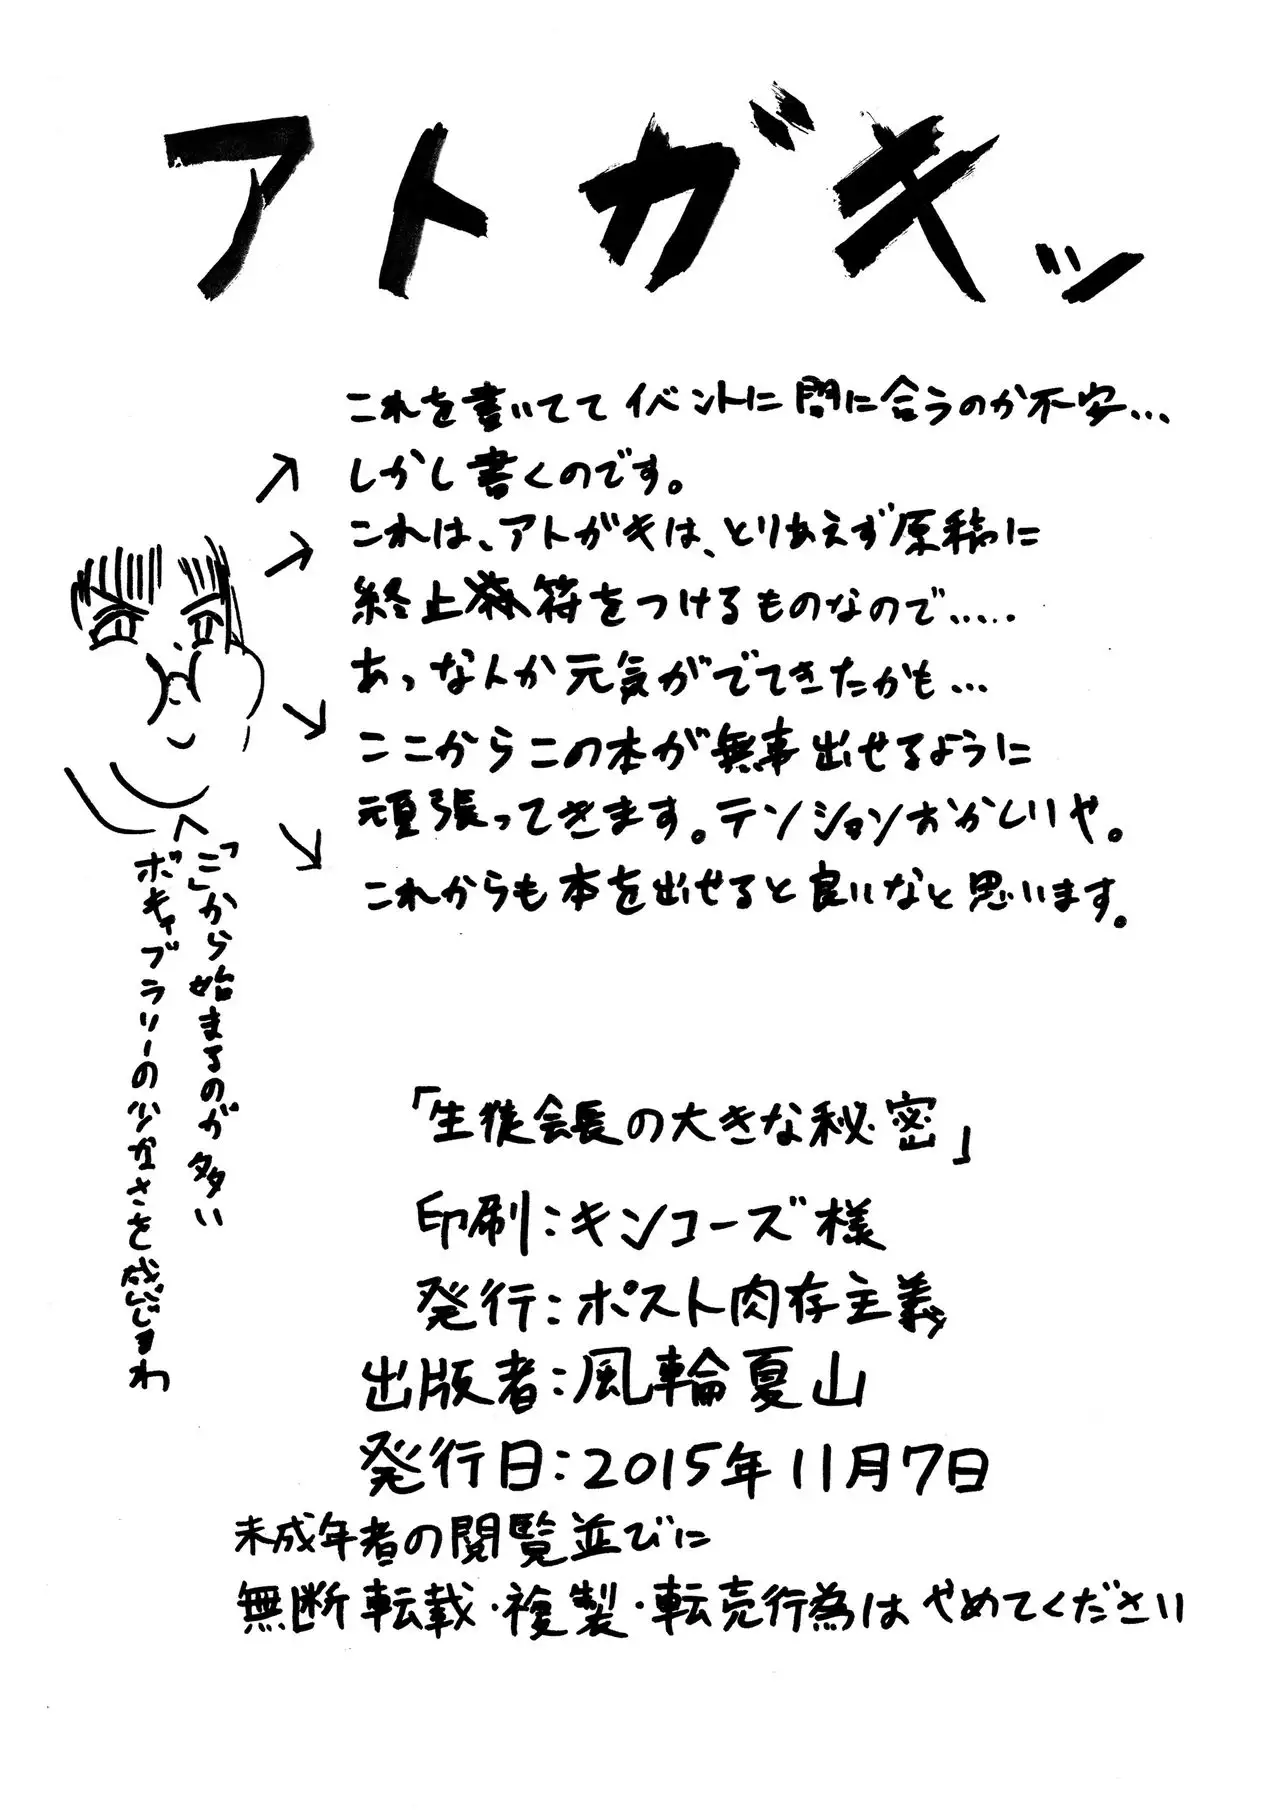 アトガキッ
これを書いてて イベントに間に合うのか不安…
しかし書くのです。
これは、アトガキは、とりあえず原稿に
終止符をつけるものなので.....
あっなんか元気がでてきたかも…
ここからこの本が無事出せるように
頑張ってきます。テンションおかしいや。
これからも本を出せると良いなと思います。
「こ」から始まるのが多い
ボキャブラリーの少なさを感じまわ
「生徒会長の大きな秘密」
印刷:キンコーズ様
発行:ポスト肉存主義
出版者:風輪夏山
発行日:2015年11月7日
未成年者の閲覧並びに
無断転載・複製・転売行為はやめてください